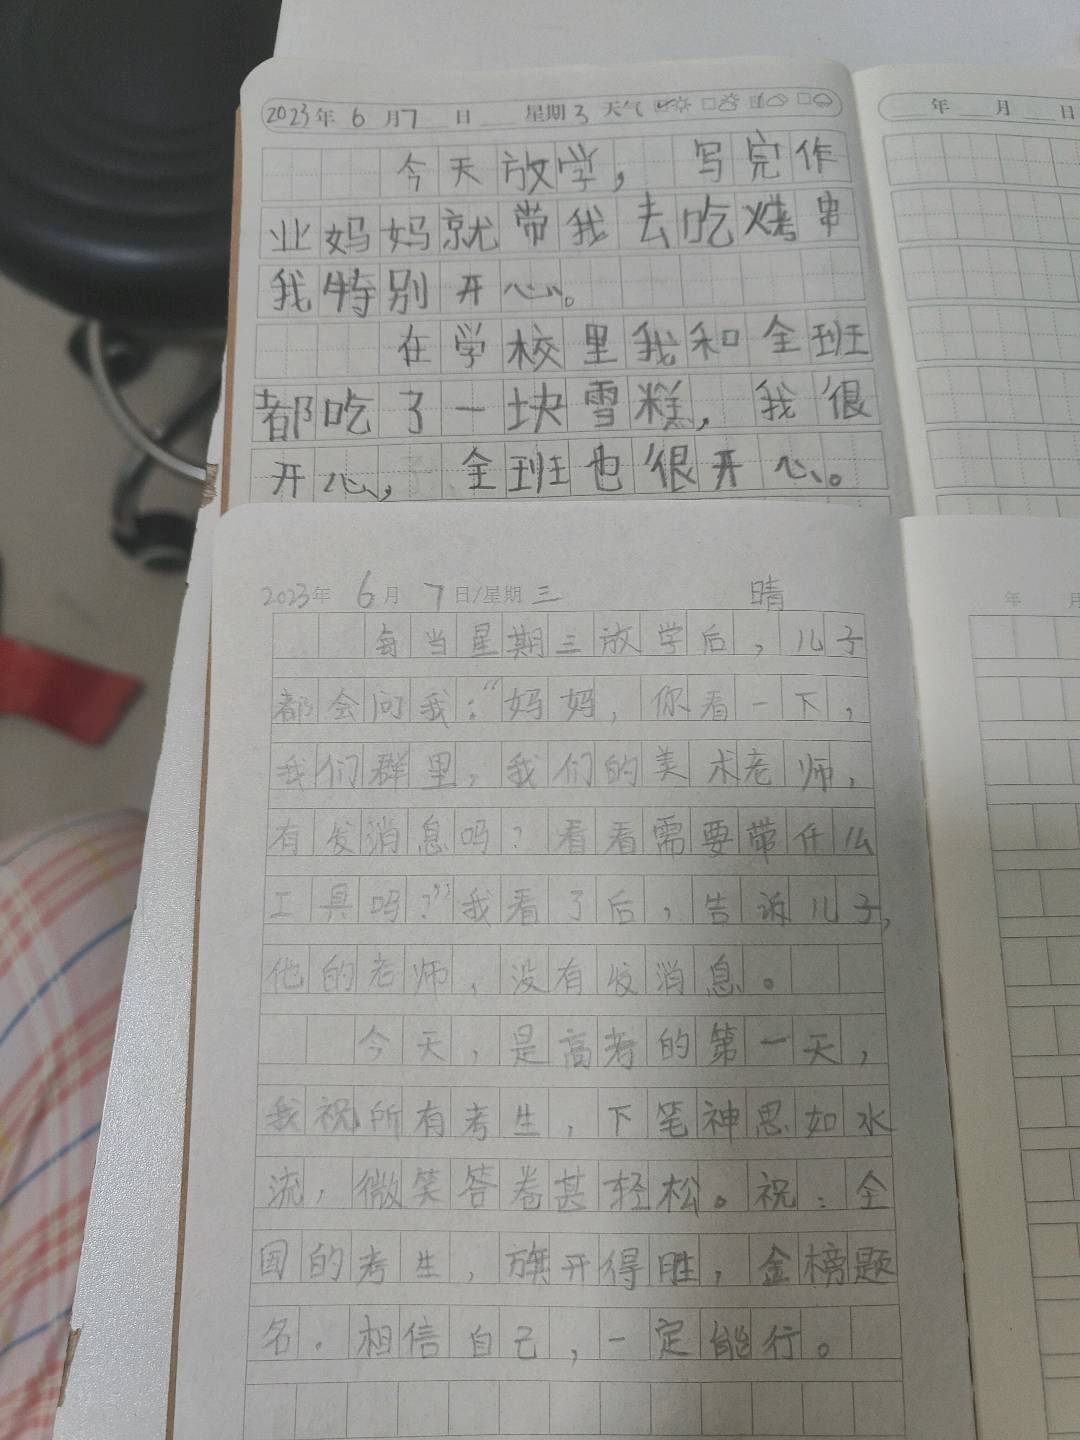 2023年 6 月7 日 星期3 天气
年 月 日
今天放学， 写完作
业妈妈就带我去吃烤串
我特别开心。
在学校里我和全班
都吃了一块雪糕，我很
开心，全班也很开心。
2023年 6月 7日/星期三 晴
年 月
每当星期三放学后，儿子
都会问我：“妈妈，你看一下，
我们群里，我们的美术老师，
有发消息吗？看看需要带什么
工具吗？”我看了后，告诉儿子，
他的老师，没有发消息。
今天，是高考的第一天，
我祝所有考生，下笔神思如水
流，微笑答卷甚轻松。祝：全
国的考生，旗开得胜，金榜题
名．相信自己，一定能行。